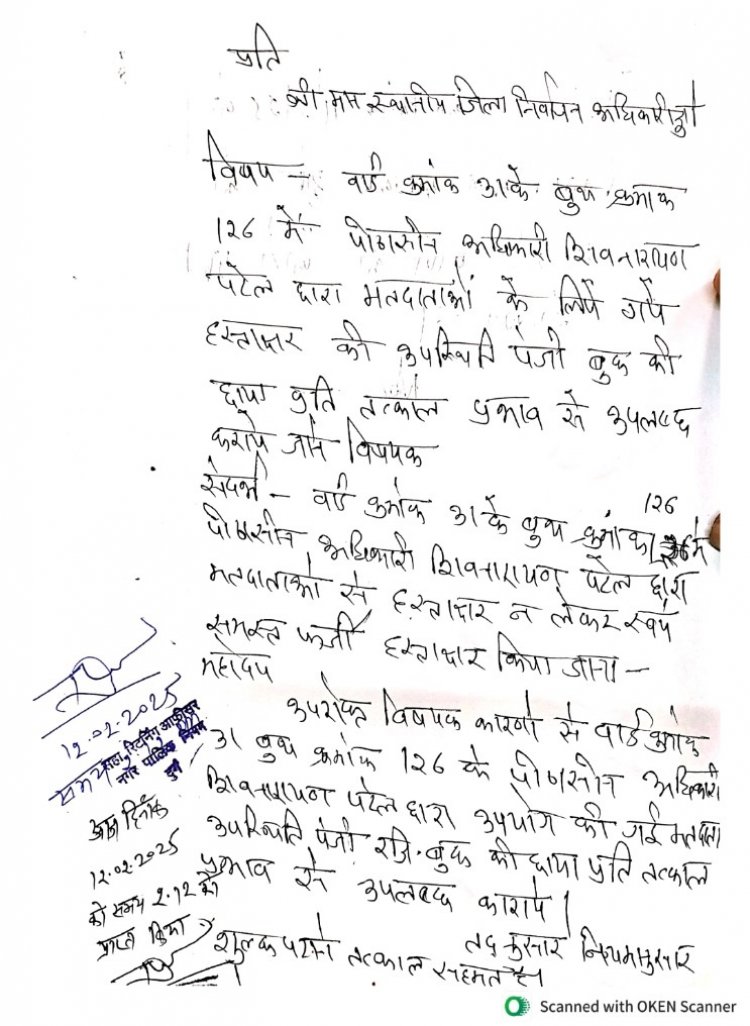 प्रति
श्री मान स्थानीय जिला निर्वाचन अधिकारी दुर्ग
विषय - वार्ड क्रमांक 31 के बुथ क्रमांक
126 में पीठासीन अधिकारी शिवनारायण
पटेल द्वारा मतदाताओं के लिये गये
हस्ताक्षर की उपस्थिति पंजी बुक की
छाया प्रति तत्काल प्रभाव से उपलब्ध
कराये जाने विषयक
संदर्भ - वार्ड क्रमांक 31 के बुथ क्रमांक 126 में
पीठासीन अधिकारी शिवनारायण पटेल द्वारा
मतदाताओं से हस्ताक्षर न लेकर स्वयं
समस्त फर्जी हस्ताक्षर किया जाना -
महोदय
उपरोक्त विषयक कारणों से वार्ड क्रमांक
31 बुथ क्रमांक 126 के पीठासीन अधिकारी
शिवनारायण पटेल द्वारा उपयोग की गई मतदाता
उपस्थिति पंजी रजि. बुक की छाया प्रति तत्काल
प्रभाव से उपलब्ध कराये।
तद नुसार नियमानुसार
शुल्क पटाने तत्काल सहमत है।
12.02.2025
रिटर्निंग आफिसर
नगर पालिक निगम
दुर्ग
आज दिनांक
12.02.2025
को समय 2.12 को
प्राप्त किया
Scanned with OKEN Scanner